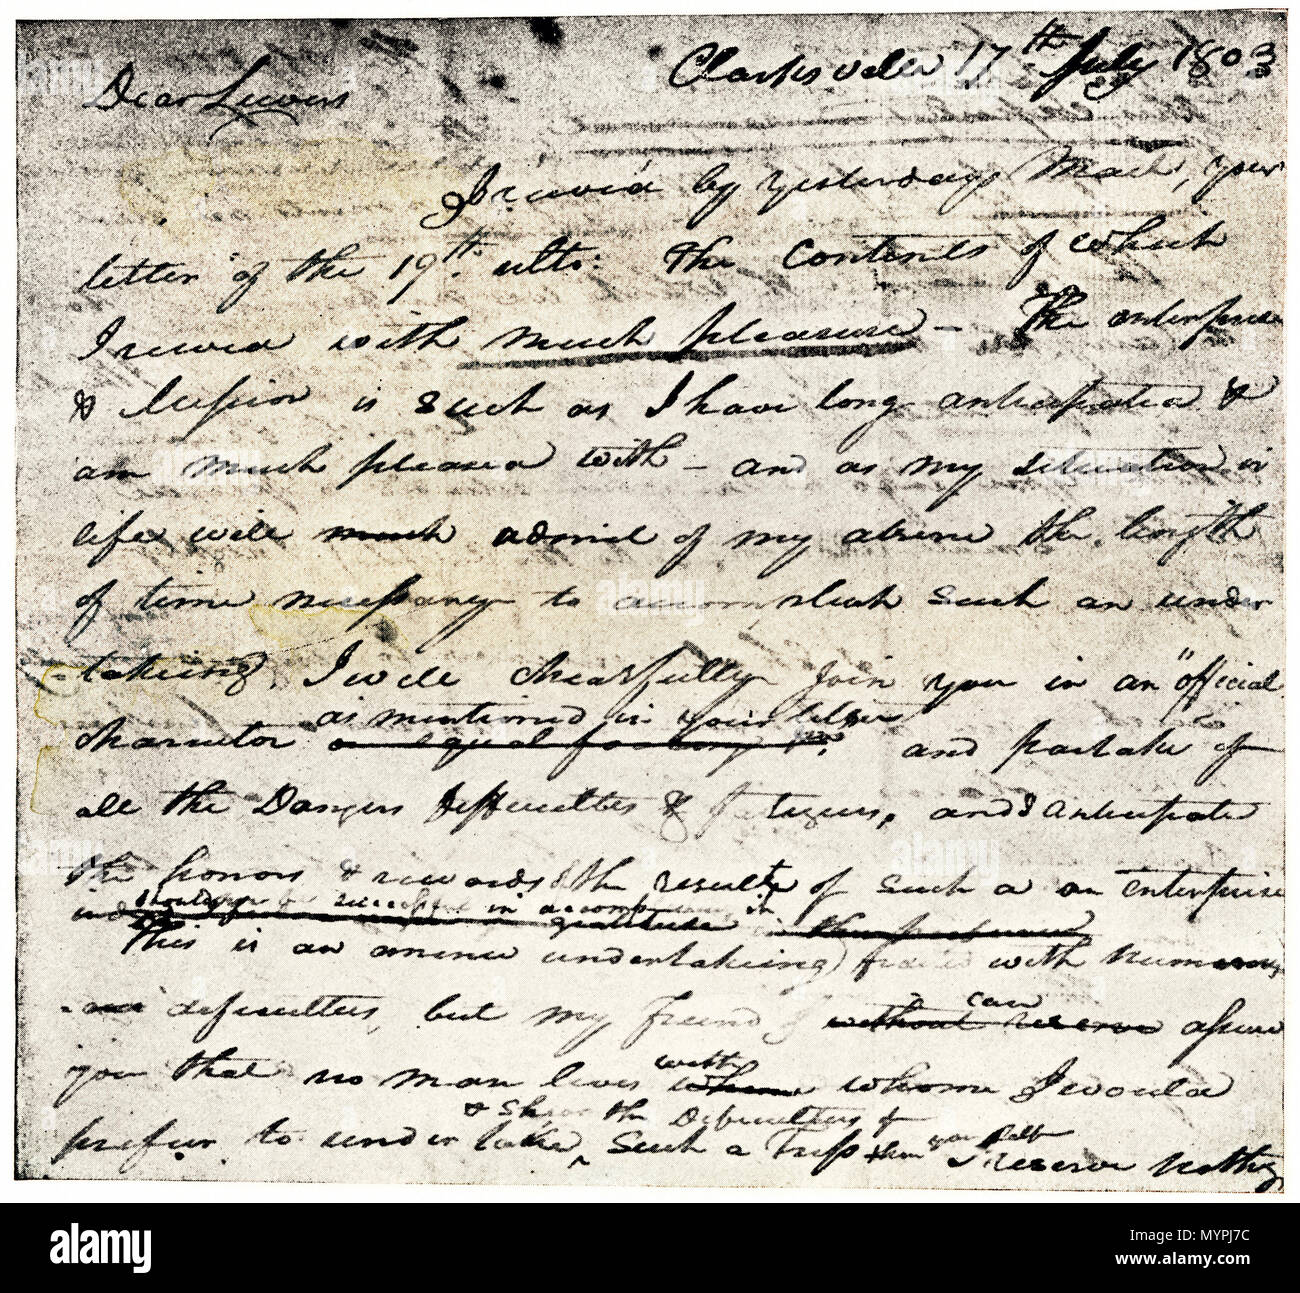 Clarksville 17th July 1803
Dear Lewis
I received by yesterdays Mail, your
letter of the 19th ulto. The Contents of which
I received with much pleasure - The enterprise
& Mission is Such as I have long anticipated &
am much pleased with - and as my situation in
life will much admit of my absence the length
of time necessary to accomplish such an under
-taking I will chearfully join you in an "official
as mentioned in your letter
Charrector on equal footing &c." and partake of
all the Dangers Difficulties & fatigues, and I anticipate
the honors & rewards of the result of such a an enterprise
should we be successful in accomplishing it
This is an amence undertaking fraited with numerous
difficulties, but my friend I can
without reserve assure
you that no man lives with
whome I would
& Share the Difficulties of
prefur to under take Such a Trip than your Self
I reserve nothing
alamy
Image ID: MYPJ7C
www.alamy.com